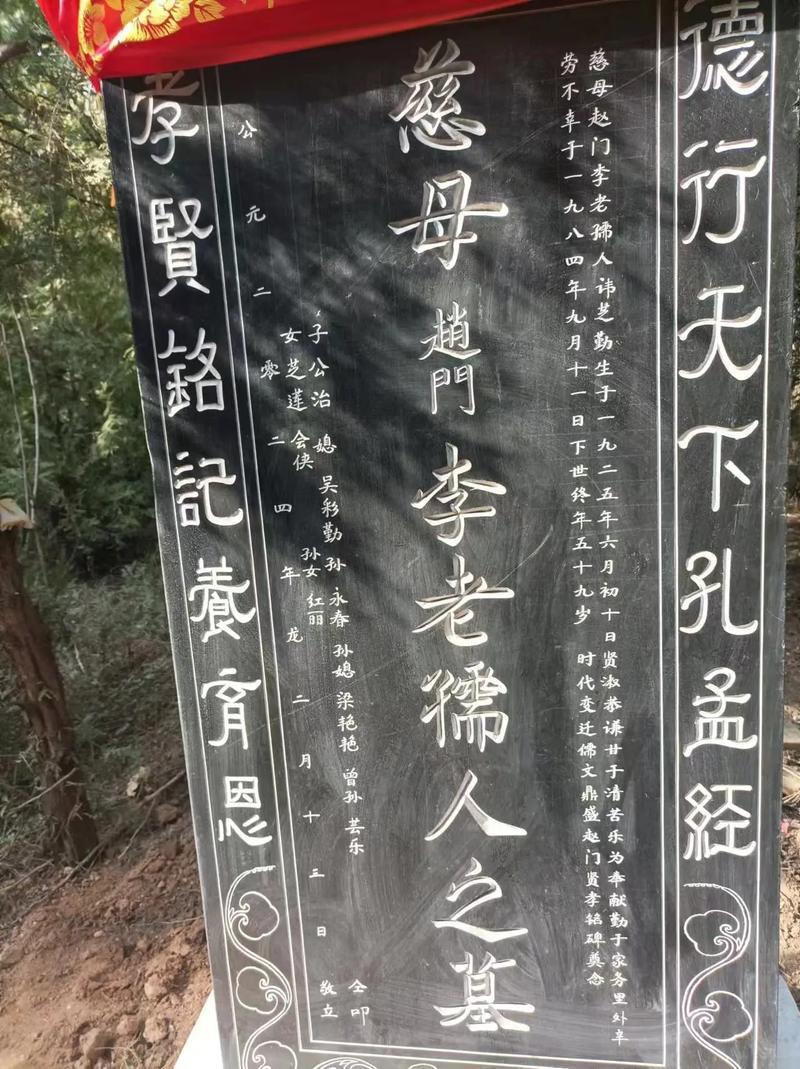 德行天下孔孟经
慈母赵门李老孺人讳芝勤生于一九二五年六月初十日贤淑恭谦甘于清苦乐为奉献勤于家务里外辛
劳不幸于一九八四年九月十一日下世终年五十九岁 时代变迁儒文鼎盛赵门贤孝铭碑奠念
慈母趙門李老孺人之墓
子公治 媳吴彩勤 孙永春 孙媳梁艳艳 曾孙芸乐 仝叩
女芝莲 会侠 孙女红丽 敬立
公元二零二四年龙二月十三日
孝賢銘記養育恩